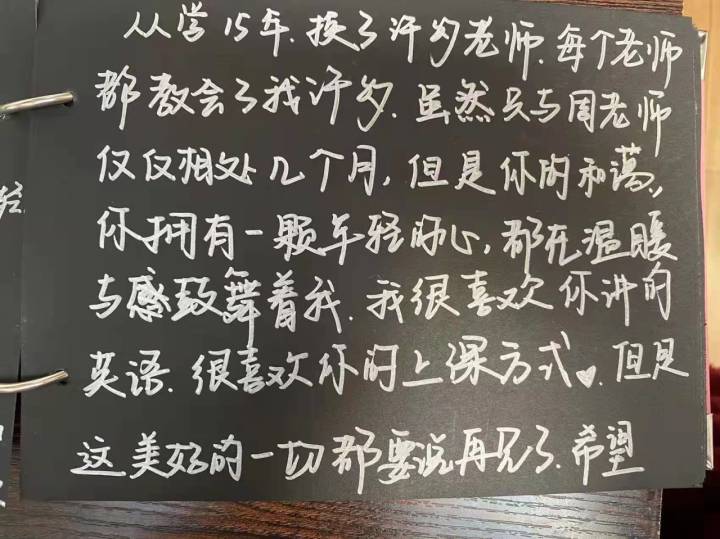 从学15年.换了许多老师.每个老师
都教会了我许多.虽然只与周老师
仅仅相处几个月,但是你的和蔼,
你拥有一颗年轻的心,都在温暖
与感鼓舞着我.我很喜欢你讲的
英语.很喜欢你的上课方式♥.但是
这美好的一切都要说再见了.希望